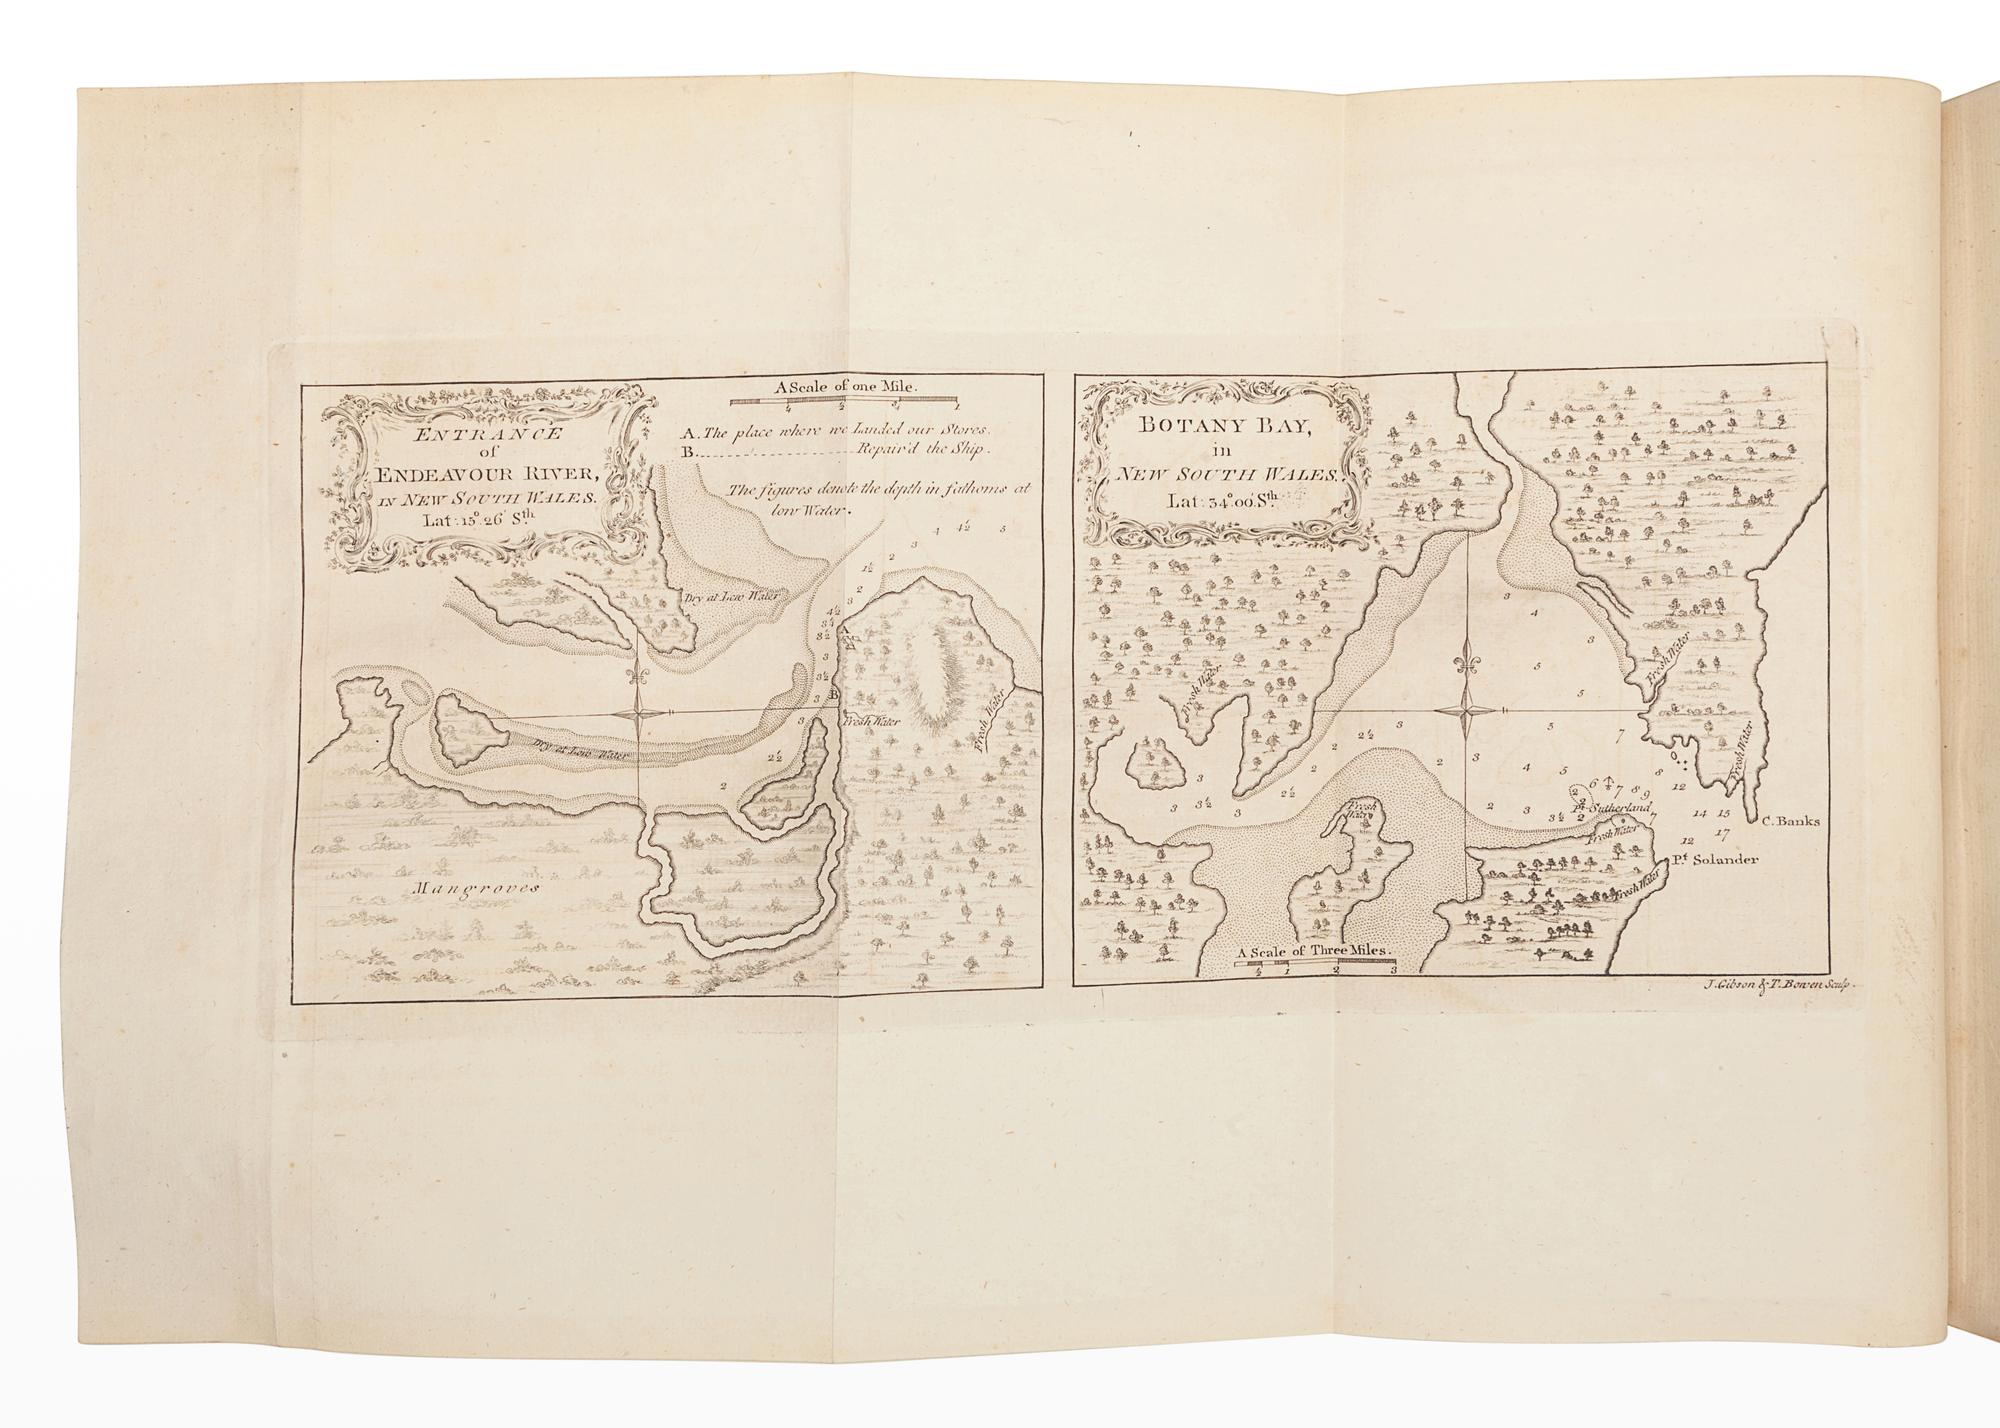 ENTRANCE
of
ENDEAVOUR RIVER,
IN NEW SOUTH WALES.
Lat: 15° 26' Sth
A Scale of one Mile.
¼ ½ ¾ 1
A. The place where we Landed our Stores.
B. Repair'd the Ship.
The figures denote the depth in fathoms at
low Water.
4 4½ 5
3
2
1½
2
3
4½
3½
3
3½
3
3
2½
2
Dry at Low Water
A
B
Fresh Water
Fresh Water
Dry at Low Water
Mangroves
BOTANY BAY,
in
NEW SOUTH WALES.
Lat: 34° 00' Sth
3
4
3
5
5
5
7
3
2½
2
3
4
5
8
12
Fresh Water
Fresh Water
Fresh Water
3
3
3½
3
2½
2
3
3½
2
6
7
8
9
7
14 15
17
12
Pt. Sutherland
Fresh Water
Fresh Water
C. Banks
Pt. Solander
Fresh Water
A Scale of Three Miles.
½ 1 2 3
J. Gibson & T. Bowen Sculp.